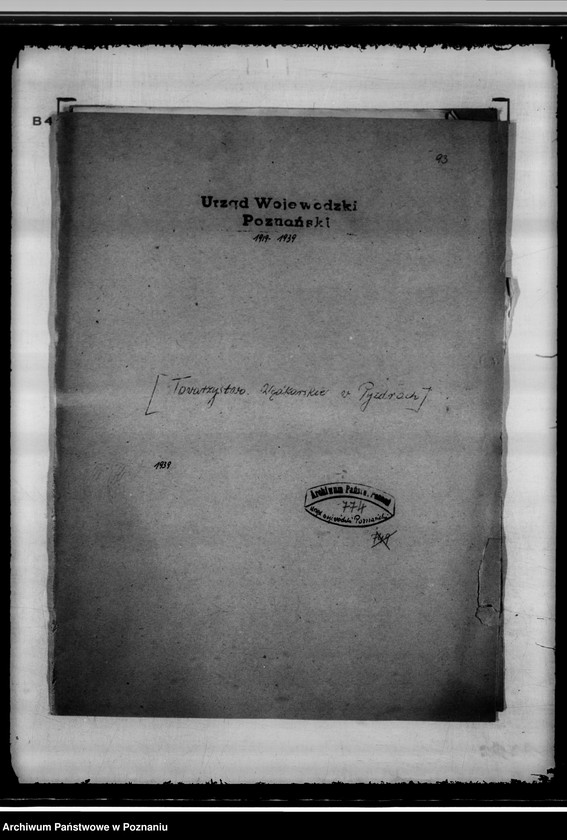 B4
93
Urząd Wojewódzki
Poznański
1919-1939
[Towarzystwo Wędkarskie w Pyzdrach]
1939
Archiwum Państw. Poznań
774
Urząd Wojewódzki Poznański
Archiwum Państwowe w Poznaniu